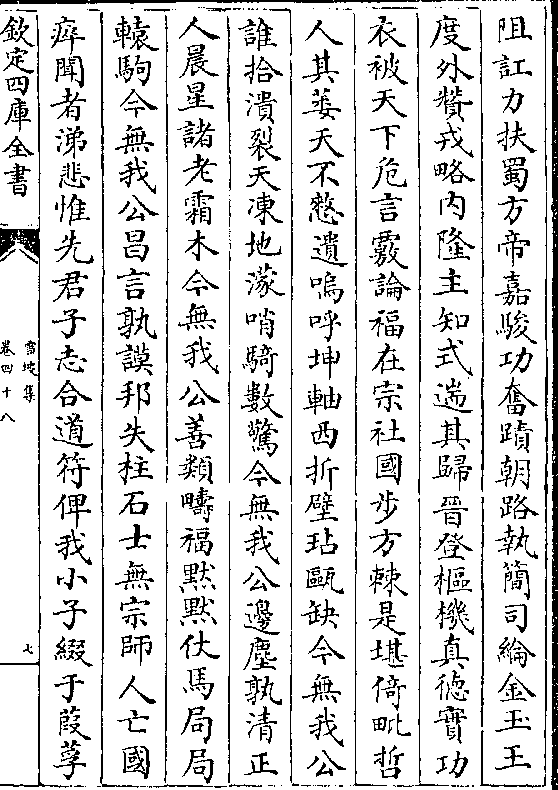 阻訌力扶蜀方帝嘉駿功奮蹟朝路執簡司綸金玉王
度外贊戎略内隆主知式遄其歸晉登樞機真徳實功
衣被天下危言覈論福在宗社國步方棘是堪倚毗哲
人其萎天不憗遺嗚呼坤軸西折壁玷甌缺今無我公
誰拾潰裂天凍地濛哨騎數驚今無我公邊塵孰清正
人晨星諸老霜木今無我公善類疇福黙黙仗馬局局
轅駒今無我公昌言孰謨邦失柱石士無宗師人亡國
瘁聞者涕悲惟先君子志合道符俾我小子綴于葭莩
欽定四庫全書
雪坡集
卷四十八
七